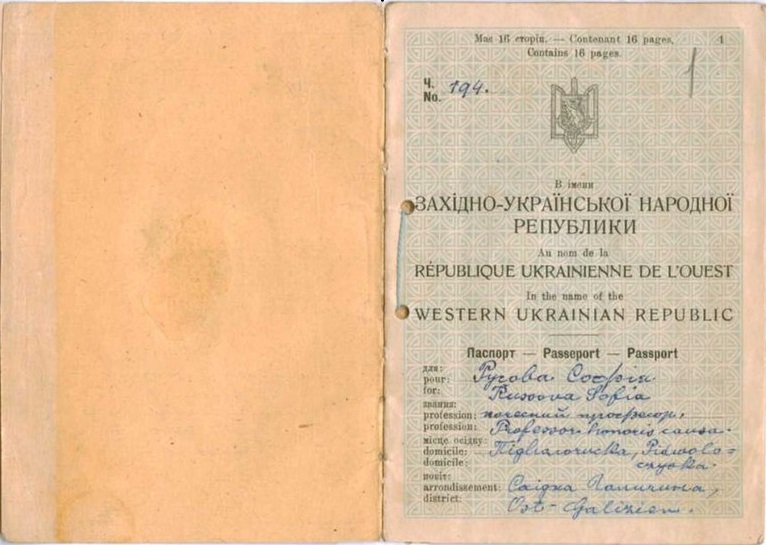 Має 16 сторін. — Contenant 16 pages. 1
Contains 16 pages.
1
Ч.
No. 194.
В імени
ЗАХІДНО-УКРАЇНСЬКОЇ НАРОДНОЇ
РЕПУБЛИКИ
Au nom de la
RÉPUBLIQUE UKRAINIENNE DE L'OUEST
In the name of the
WESTERN UKRAINIAN REPUBLIC
Паспорт — Passeport — Passport
для:
pour: Русова Софія
for: Russova Sofia
звання:
profession: почесний професор,
profession: Professor honoris causa.
місце осідку:
domicile: Підволочиська, Pidwolo-
domicile: czyska.
повіт:
arrondissement: Східна Галичина,
district: Ost-Galizien.